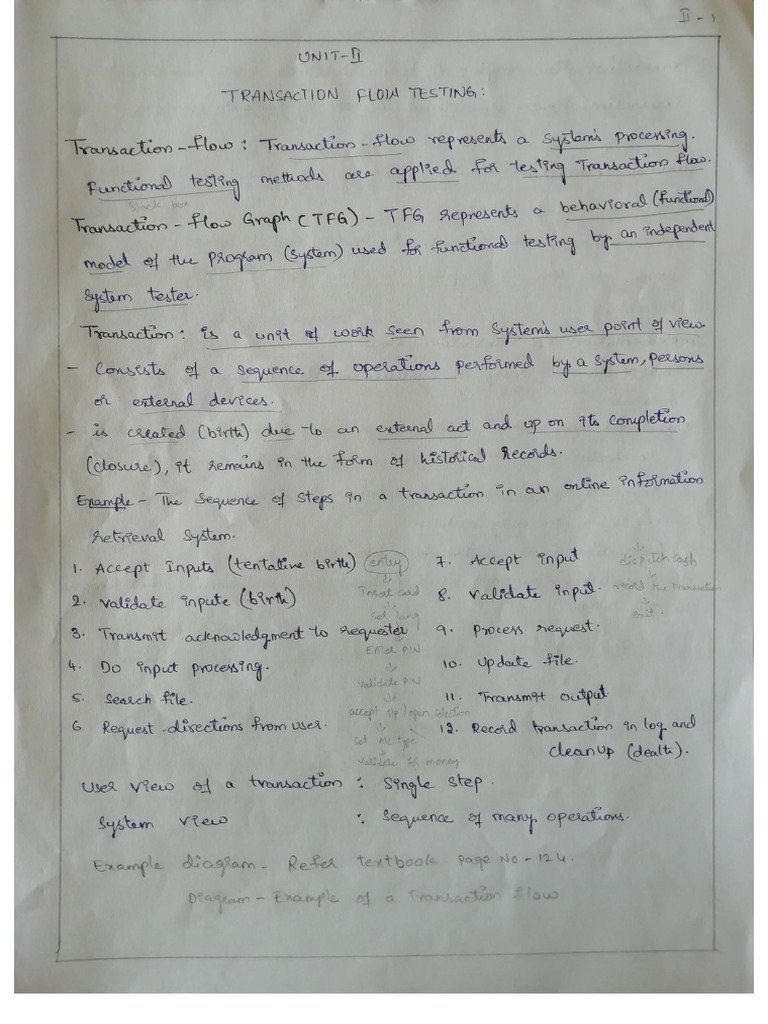 II - 1
UNIT-II
TRANSACTION FLOW TESTING:
Transaction-flow: Transaction-flow represents a system's processing.
Functional testing methods are applied for testing Transaction flow.
Black box
Transaction-flow Graph (TFG) - TFG represents a behavioral (functional)
model of the program (system) used for functional testing by an independent
system tester.
Transaction: is a unit of work seen from system's user point of view.
- Consists of a sequence of operations performed by a system, persons
or external devices.
- is created (birth) due to an external act and up on its completion
(closure), it remains in the form of historical records.
Example - The sequence of steps in a transaction in an online information
retrieval system.
1. Accept Inputs (tentative birth)
2. Validate inputs (birth)
3. Transmit acknowledgment to requester
4. Do input processing.
5. Search file.
6. Request directions from user.
entry
Insert card
Set lang
Enter PIN
validate PIN
accept i/p/open selection
Set A/c type
validate of money
7. Accept input
8. Validate input.
9. Process request.
10. Update file.
11. Transmit output
12. Record transaction in log and
cleanup (death).
dispatch cash
record the transaction
exit.
User view of a transaction : Single step.
System view : Sequence of many operations.
Example diagram - Refer textbook page No - 124.
Diagram - Example of a Transaction flow